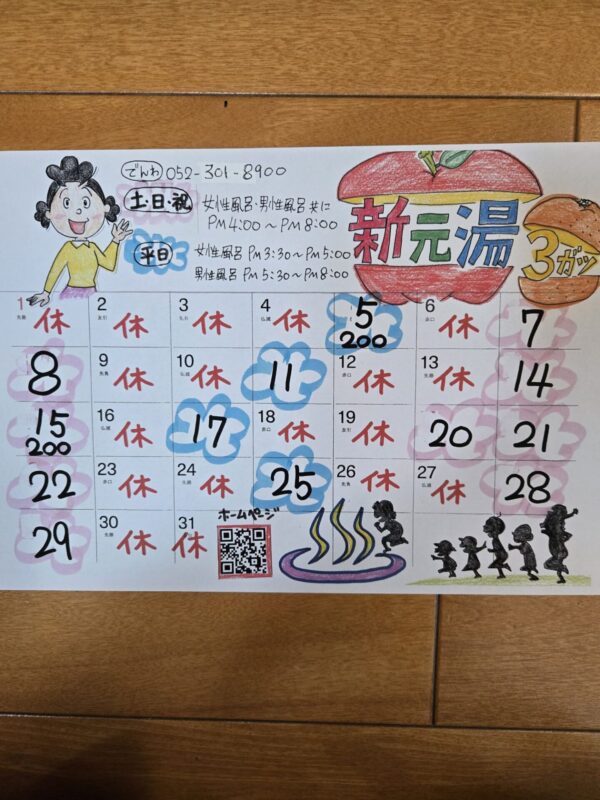 でんわ 052-301-8900
土・日・祝 女性風呂・男性風呂 共に
PM4:00～PM8:00
平日 女性風呂 PM3:30～PM5:00
男性風呂 PM5:30～PM8:00
新元湯
3ガツ
1 休 2 休 3 休 4 休 5 200 6 休 7
8 9 休 10 休 11 12 休 13 休 14
15 200 16 休 17 18 休 19 休 20 21
22 23 休 24 休 25 26 休 27 休 28
29 30 休 31 休
ホームページ